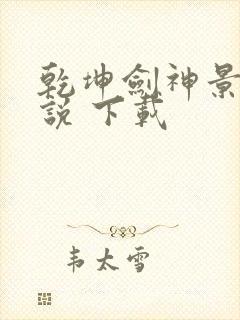 乾坤劍神景
說 下載
韦太雪